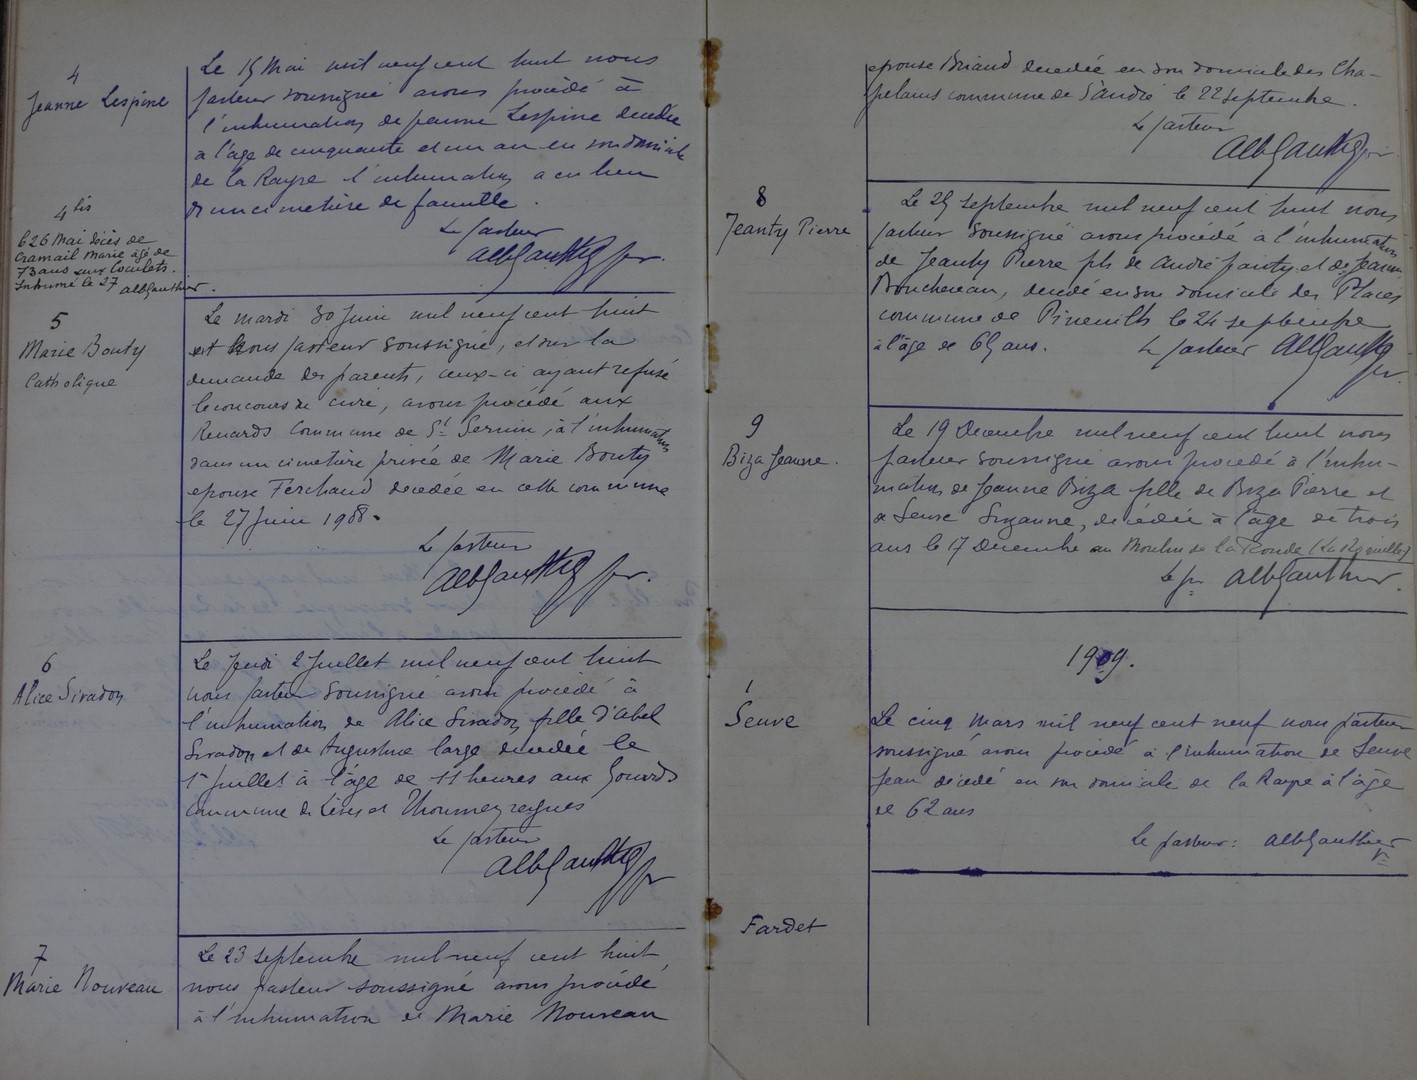 4
Jeanne Lespine
Le 15 Mai mil neuf cent huit nous
pasteur soussigné avons procédé à
l'inhumation de Jeanne Lespine décédée
à l'âge de cinquante et un an en son domicile
de la Raype l'inhumation a eu lieu
d un cimetière de famille.
Le pasteur
Alb Gauthier pr.
4 bis
le 26 Mai décès de
Cramail Marie âgé de
73 ans aux Coculets.
Inhumé le 27 Alb Gauthier.
5
Marie Bouty
Catholique
Le mardi 30 Juin mil neuf cent huit
et nous pasteur soussigné, et sur la
demande des parents, ceux-ci ayant refusé
le concours du curé, avons procédé aux
Renards commune de St Sernin, à l'inhumation
dans un cimetière privée de Marie Bouty
epouse Ferchaud decedée en cette commune
le 27 Juin 1908.
Le pasteur
Alb Gauthier pr.
6
Alice Siradon
Le Jeudi 2 Juillet mil neuf cent huit
nous pasteur soussigné avons procédé à
l'inhumation de Alice Siradon fille d'Abel
Siradon et de Augustine large decedée le
1er Juillet à l'âge de 11 heures aux Gourds
commune de Lèves et Thoumeyragues
Le pasteur
Alb Gauthier pr
7
Marie Nouveau
Le 23 septembre mil neuf cent huit
nous pasteur soussigné avons procédé
à l'inhumation de Marie Nouveau
epouse Briand decedée en son domicile des Cha-
pelains commune de S'André le 22 septembre.
Le pasteur
Alb Gauthier pr
8
Jeanty Pierre
Le 25 septembre mil neuf cent huit nous
pasteur soussigné avons procédé à l'inhumation
de Jeanty Pierre fils de André Jeanty et de Jeanne
Bouchereau, decedé en son domicile des Places
commune de Pineuilh le 24 septembre
à l'âge de 65 ans. Le pasteur Alb Gauthier
pr.
9
Biza Jeanne.
Le 19 Decembre mil neuf cent huit nous
pasteur soussigné avons procédé à l'inhu-
mation de Jeanne Biza fille de Biza Pierre et
de Seuve Suzanne, decédée à l'âge de trois
ans le 17 Decembre au Moulin de la Ronde (La Roquille)
Le pr Alb Gauthier.
1909.
1
Seuve
Le cinq mars mil neuf cent neuf nous pasteur
soussigné avons procédé à l'inhumation de Seuve
Jean décédé en son domicile de la Raype à l'âge
de 62 ans
Le pasteur: Alb Gauthier
pr
Fardet